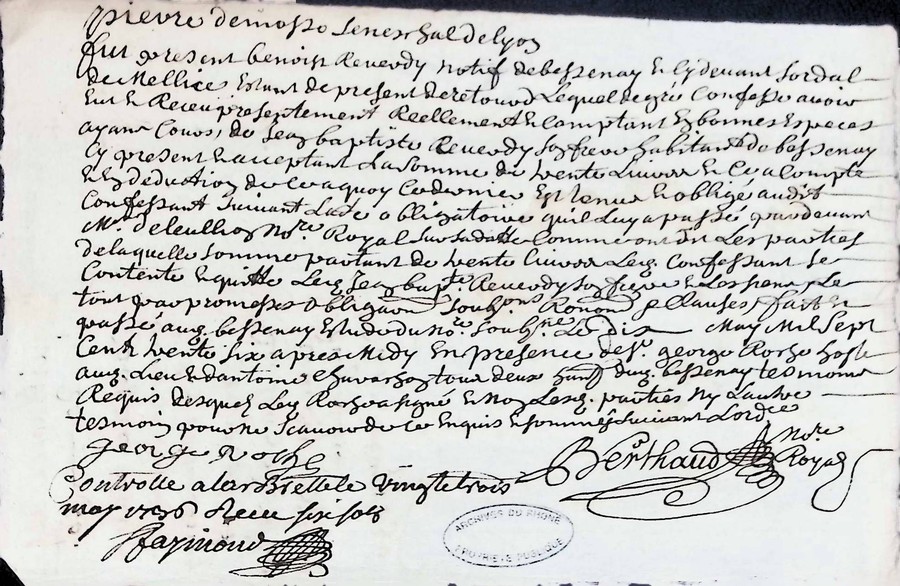 pierre demosso Seneschal de lyon
fut present benoist Reverdy Notif de bessenay Et Cy devant Soldat
de Mellice Estant de present de retourd Lequel de gré Confesse avoir
Eut Et Receu presentement Reellement Et Comptant En bonnes Especes
ayant Cours, de Jean baptiste Reverdy son frere habitant de bessenay
Cy present Et acceptant La Somme de trente Livres Et Ce a Compte
Et En deduction de Ce a quoy Ce dernier Est tenu Et obligé audit
Confessant Suivant Lacte obligatoire quil luy a passé pardevant
Me. deleullion Nore. Royal Sur Sa datte Comme ont dit Les parties
de laquelle Somme partant de trente Livres Led. Confessant Se
Contente Et quitte Led. Jean bapte. Reverdy son frere Et Les Siens, Le
tout par promesses obligaon. Soubmons. Renonon & Clauses, fait Et
passé aud. bessenay Estude du Nore. Soubné. Le dix May Mil Sept
Cent trente Six apres Midy En presence de Sr. george Roche hoste
aud. Lieu Et dantoine Chavachon tous deux habts dud. bessenay tesmoins
Requis desquels Led. Roche a signé Et Non Lesd. parties Ny Lautre
tesmoin pour ne Scavoir de Ce Enquis Et Sommés Suivant Lordce
George Roche
Berthaud Nore Royal
Controllé a larbresle le vingt et trois
may 1736 Receu six sols
Raymond
ARCHIVES DU RHONE
PROPRIETE PUBLIQUE